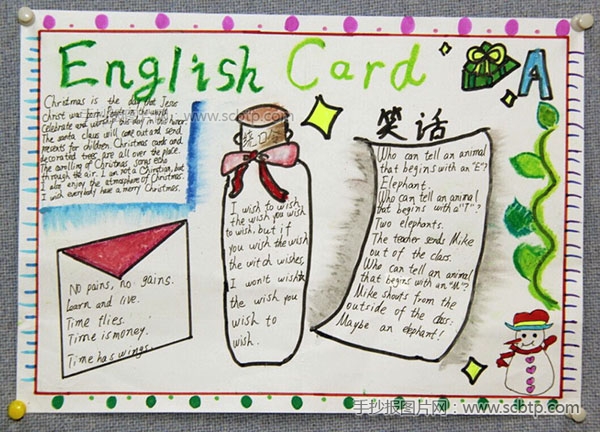 English Card
www.scbtp.com
Christmas is the day that Jesu
christ was born. People in the world
Celebrate and worship this day in this hour.
The santa claus will come out and send
presents for children. Christmas cards and
decorated trees are all over the place.
The carolling of Christmas songs echo
through the air. I am not a Christian, but
I also enjoy the atmosphere of Christmas.
I wish everybody have a merry Christmas.
No pains, no gains.
Learn and live.
Time flies.
Time is money.
Time has wings.
绕口令
I wish to wish
the wish you wish
to wish, but if
you wish the wish
the witch wishes,
I won't wish
the wish you
wish to
wish.
笑话
Who can tell an animal
that begins with an "E"?
Elephant.
Who can tell an animal
that begins with a "T"?
Two elephants.
The teacher sends Mike
out of the class.
Who can tell an animal
that begins with an "M"?
Mike shouts from the
outside of the class:
Maybe an elephant!
A
手抄报图片网：www.scbtp.com